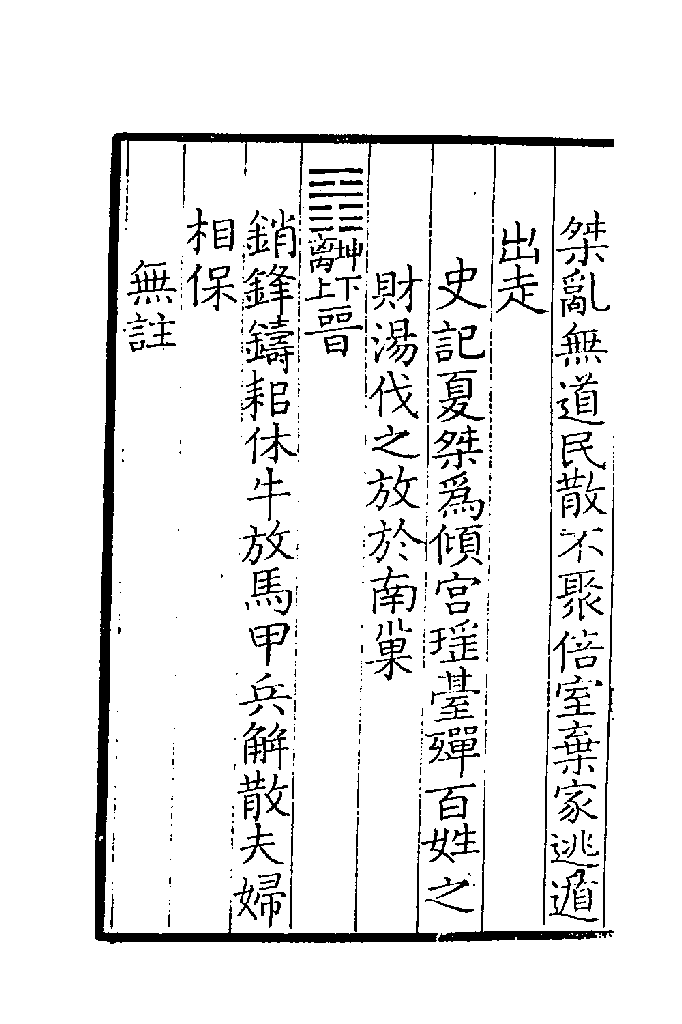 桀亂無道民散不聚倍室棄家逃遁
出走
史記夏桀爲傾宫瑶臺殫百姓之
財湯伐之放於南巢
䷢坤下离上晉
銷鋒鑄耜休牛放馬甲兵解散夫婦
相保
無註